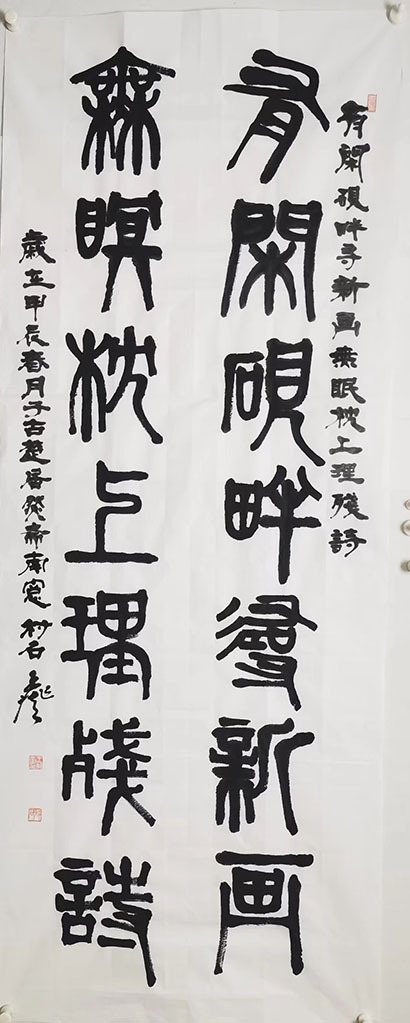 有閑硯畔寻新画無眠枕上理殘詩
有閑硯畔尋新画
無瞑枕上理殘詩
歲在甲辰春月于古楚齋南窗村石